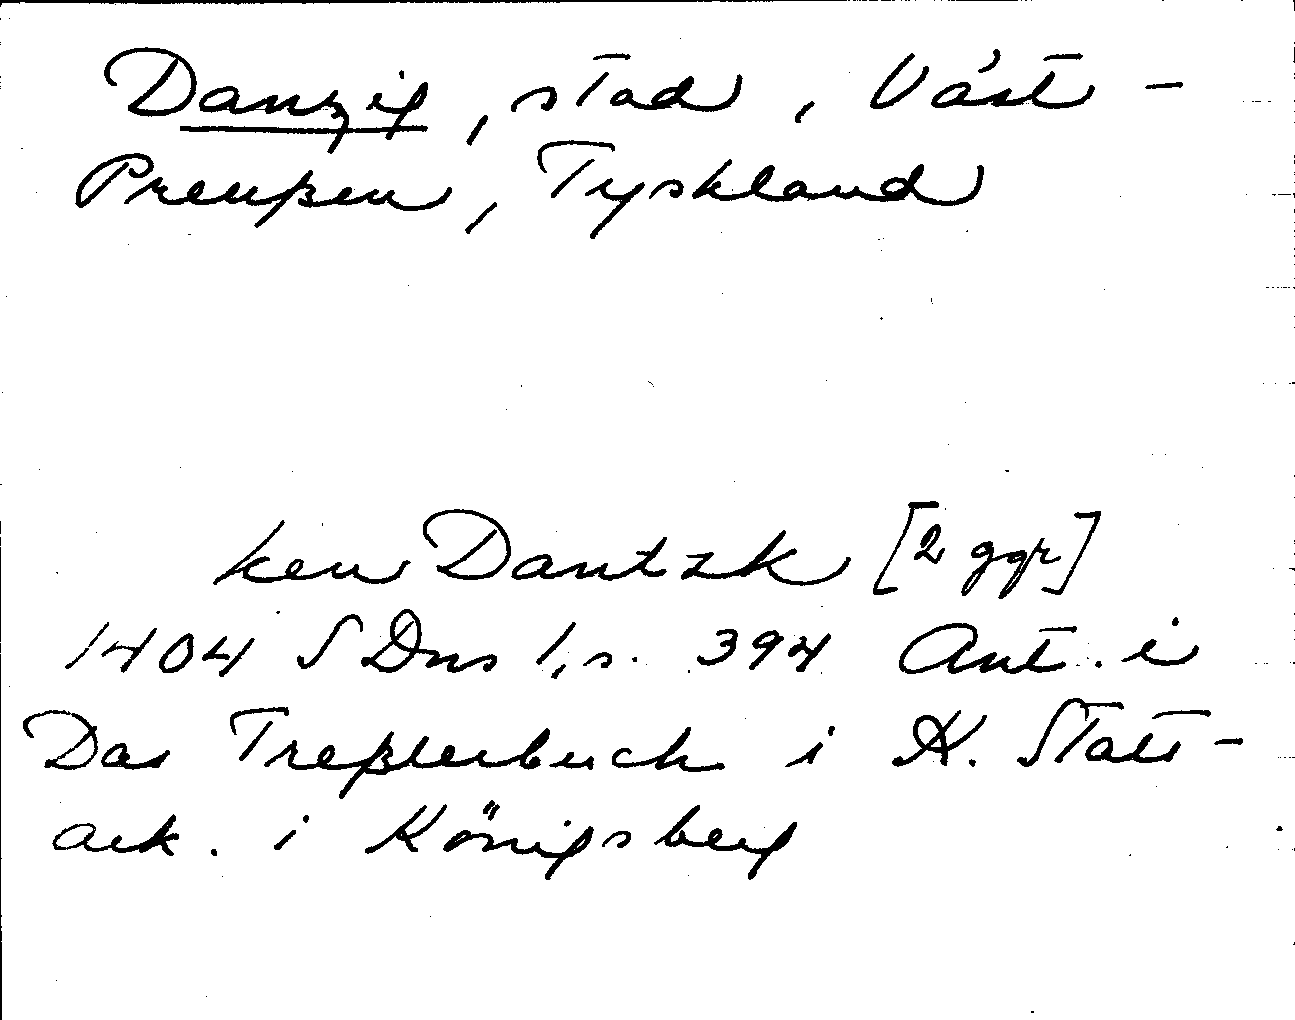 Danzig, stad, Väst-
Preußen, Tyskland
ken Dantzk [2 ggr]
1404 SDns 1, s. 394 Ant. i
Das Treßlerbuch i K. Stats-
ark. i Königsberg